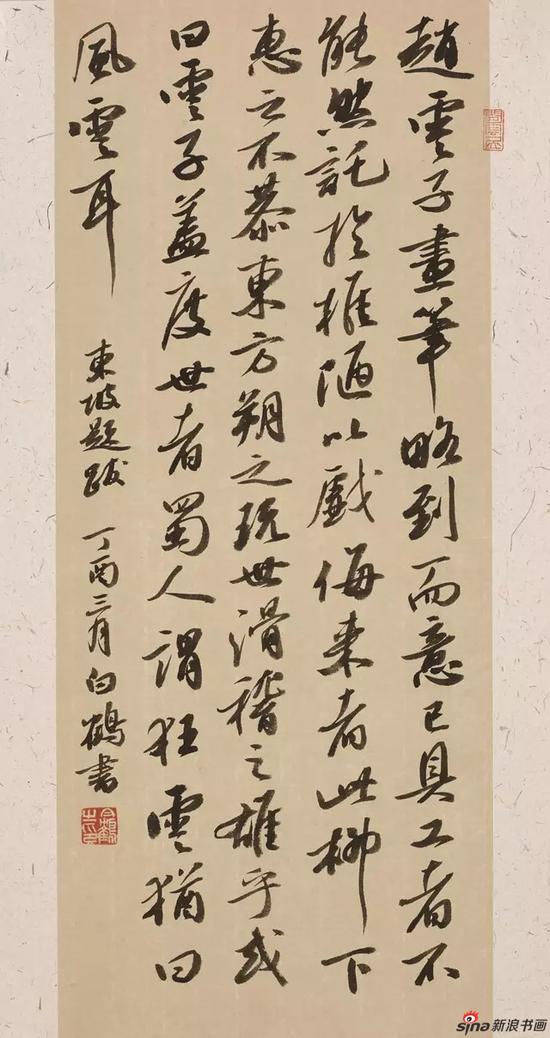 趙雲子畫筆略到而意已具工者不
能然託於椎陋以戲侮来者此柳下
惠之不恭東方朔之玩世滑稽之雄乎或
曰雲子蓋度世者蜀人謂狂雲猶曰
風雲耳
東坡題跋 丁酉三月白鶴書
sina新浪书画